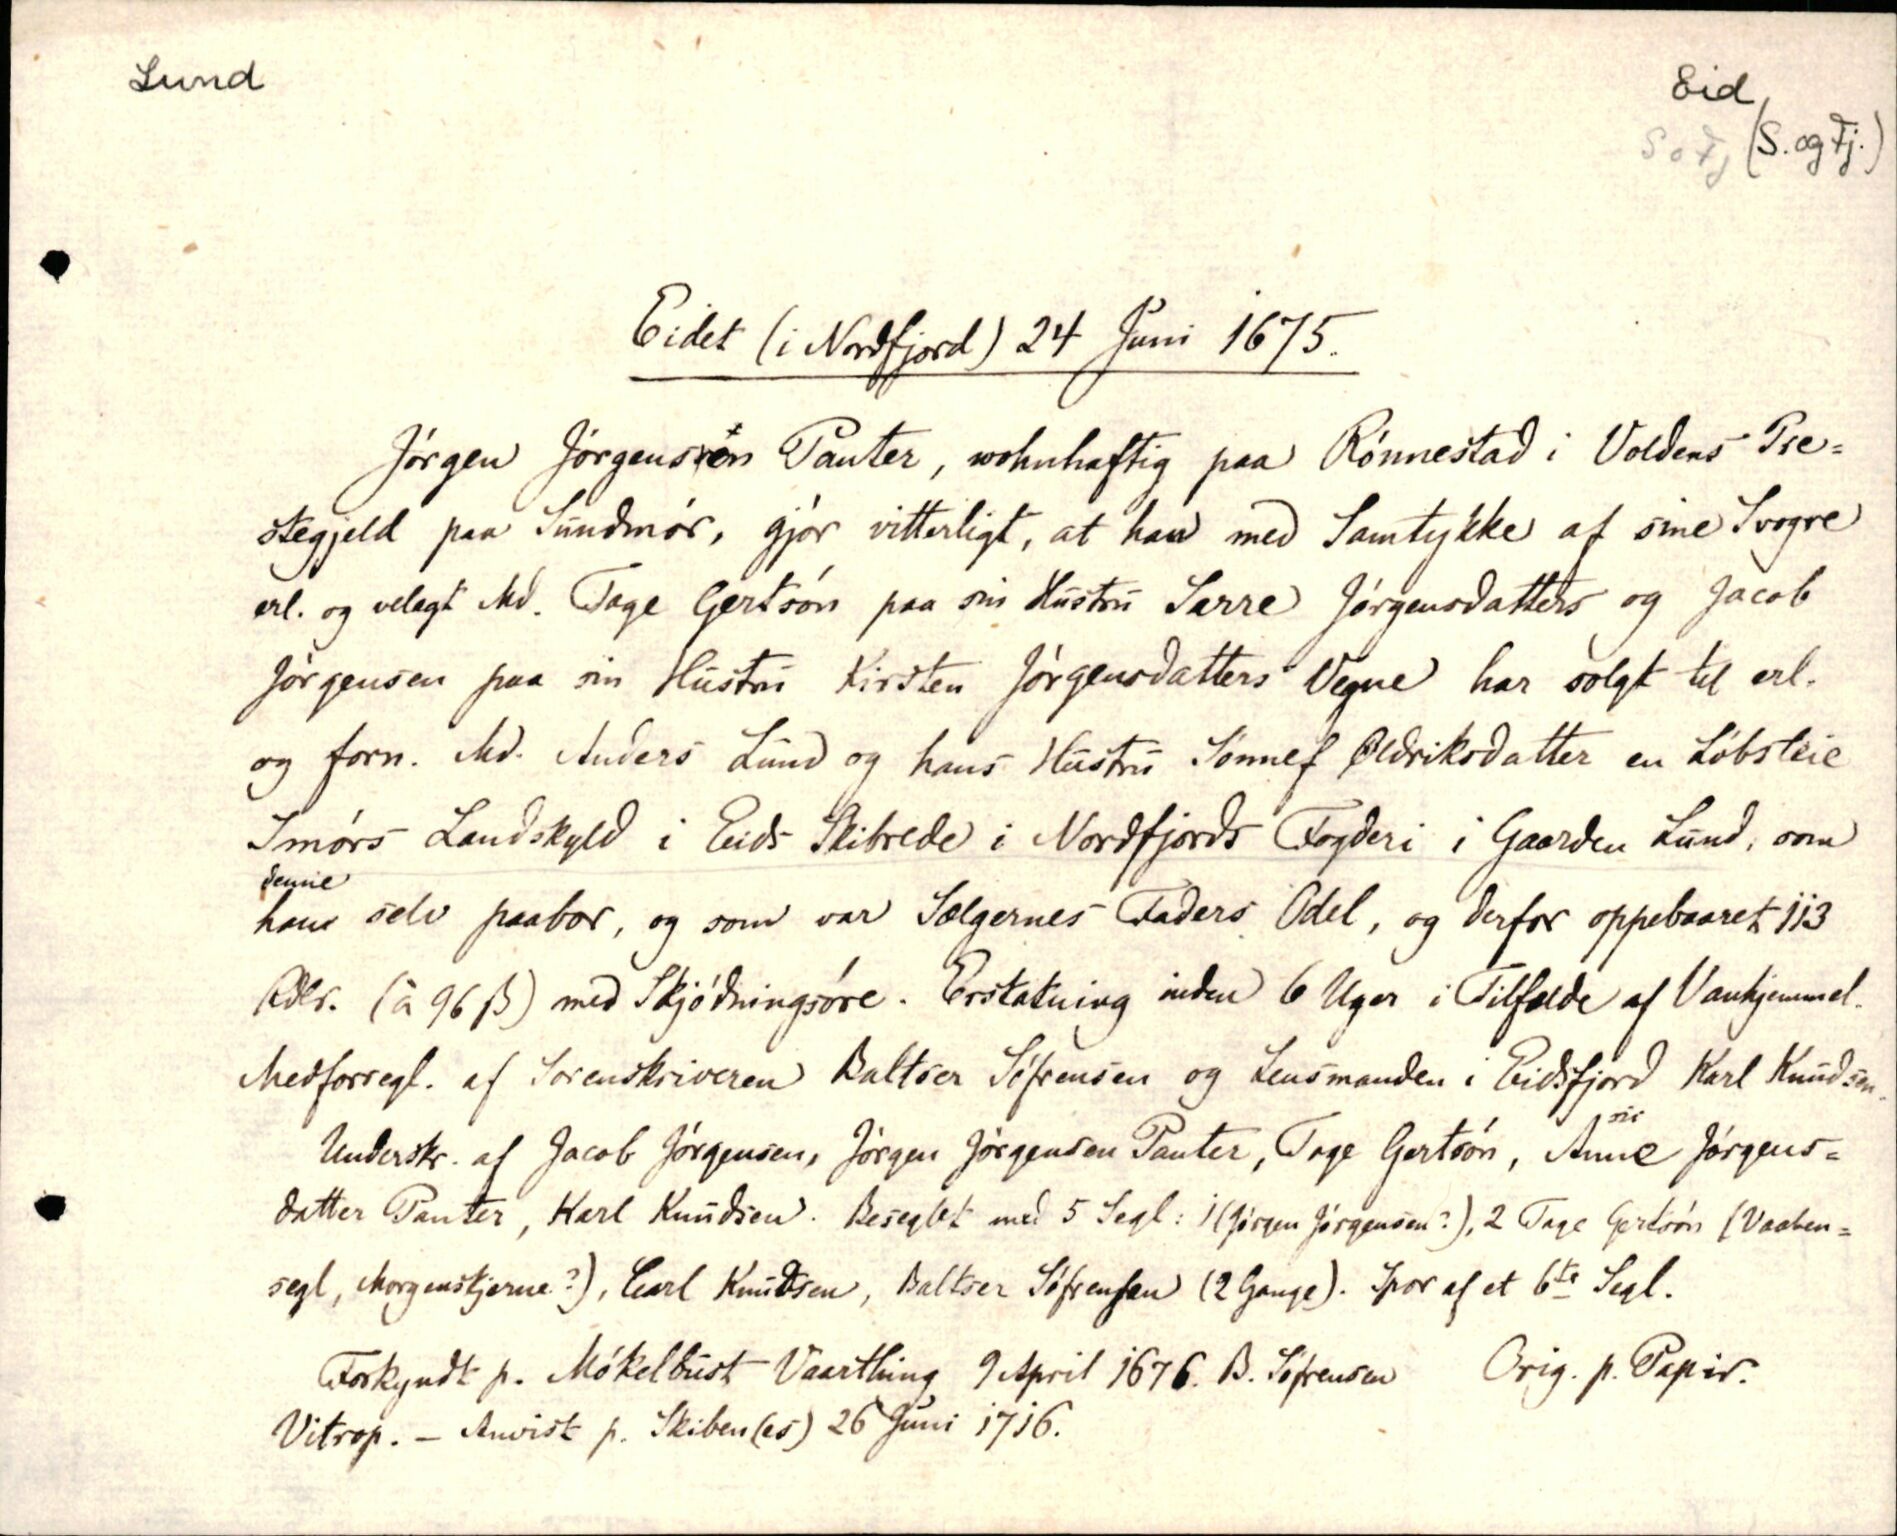 Lund
Eid
S o Fj (S. og Fj.)
Eidet (i Nordfjord) 24 Juni 1675.
Jörgen Jörgensøn Panter, wohnhaftig paa Rönnestad i Voldens Pre-
stegjeld paa Sundmör, gjör vitterligt, at han med Samtykke af sine Svogre
erl. og velagt Md. Tage Gertsön paa sin Hustru Sarre Jörgensdatters og Jacob
Jörgensen paa sin Hustru Kirsten Jörgensdatters Vegne har solgt til erl.
og forn. Md. Anders Lund og hans Hustru Sönnef Oldriksdatter en Löbsleie
Smörs Landskyld i Eids Skibrede i Nordfjords Fogderi i Gaarden Lund, som
denne
han selv paabor, og som var Sælgernes Faders Odel, og derfor oppebaaret 113
Rdlr. (à 96 ß) med Skjödningsöre. Erstatning inden 6 Uger i Tilfælde af Vanhjemmel.
Medforsegl. af Sorenskriveren Baltser Söfrensen og Lensmanden i Eidsfjord Karl Knudsen.
Underskr. af Jacob Jörgensen, Jörgen Jörgensen Panter, Tage Gertsön, Anne sic Jörgens-
datter Panter, Karl Knudsen. Beseglet med 5 Segl: 1 (Jörgen Jörgensen?), 2 Tage Gertsön (Vaaben-
segl, Morgenstjerne?), Carl Knudsen, Baltser Söfrensen (2 Gange). Spor af et 6te Segl.
Forkyndt p. Mökelbust Vaarthing 9 April 1676. B. Söfrensen Orig. p. Papir.
Vitrop. – Anvist p. Skiben(es) 26 Juni 1716.